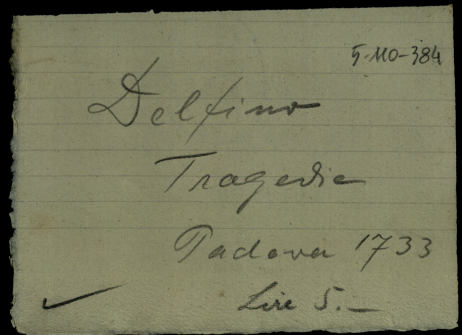 5-110-384
Delfino
Tragedie
Padova 1733
Lire 5.—